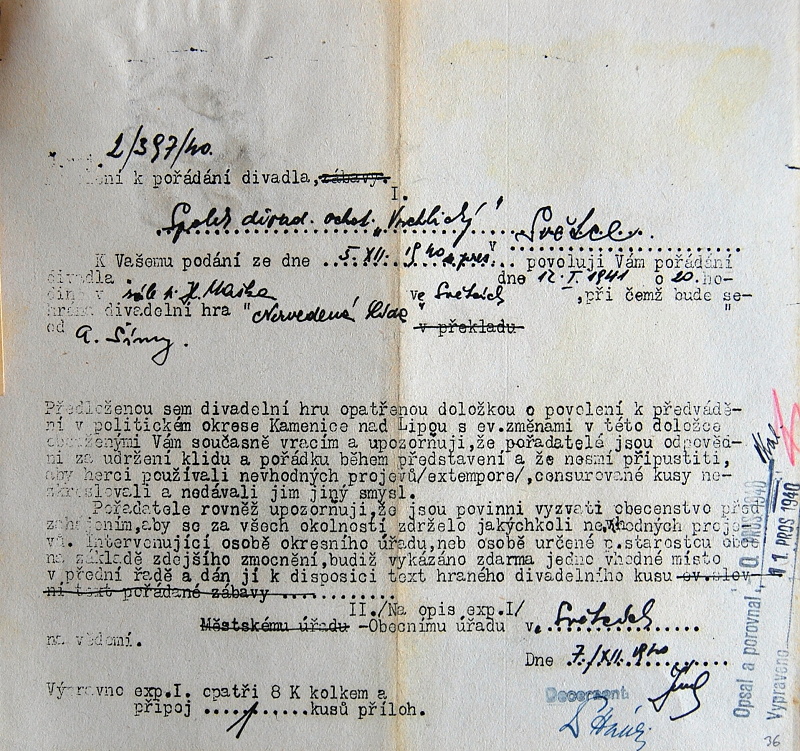 2/397/40.
k pořádání divadla, zábavy.
I.
Spolek divad. ochot. „Vrchlický" Světce.
K Vašemu podání ze dne 5. XII. 1940 povoluji Vám pořádání
divadla dne 12. I. 1941 o 20. ho-
v sále p. Maska ve Světcích, při čemž bude se-
divadelní hra " "
v překladu
od A. Šímy.
Předloženou sem divadelní hru opatřenou doložkou o povolení k předvádě-
ní v politickém okrese Kamenice nad Lipou s ev.změnami v této doložce
Vám současně vracím a upozorňuji,že pořadatelé jsou odpověd-
ni za udržení klidu a pořádku během představení a že nesmí připustiti,
aby herci používali nevhodných projevů/extempore/,censurované kusy ne-
zkreslovali a nedávali jim jiný smysl.
Pořadatele rovněž upozorňuji,že jsou povinni vyzvati obecenstvo před
zahájením,aby se za všech okolností zdrželo jakýchkoli nevhodných proje-
vů. Intervenující osobě okresního úřadu,neb osobě určené p.starostou obce
na základě zdejšího zmocnění,budiž vykázáno zdarma jedno vhodné místo
v přední řadě a dán jí k disposici text hraného divadelního kusu ev.slov-
ní text pořádané zábavy
II./Na opis exp.I/
Městskému úřadu -Obecnímu úřadu ve Světcích
na vědomí.
Dne 7./XII. 1940
Výpravno exp.I. opatři 8 K kolkem a
připoj kusů příloh.
Decernent
Opsal a porovnal
PROS 1940
Vypraveno
11 PROS 1940
36